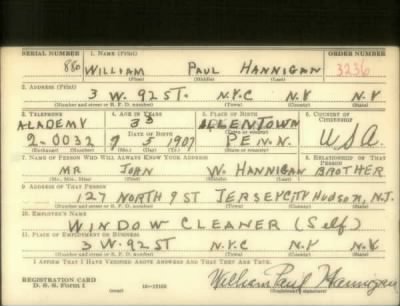 SERIAL NUMBER 1. NAME (Print) ORDER NUMBER
880 WILLIAM PAUL HANNIGAN 3236
(First) (Middle) (Last)
2. ADDRESS (Print)
3 W. 92 ST. N.Y.C N.Y N.Y
(Number and street or R. F. D. number) (Town) (County) (State)
3. TELEPHONE 4. AGE IN YEARS 5. PLACE OF BIRTH 6. COUNTRY OF CITIZENSHIP
ACADEMY 33 ALLENTOWN
DATE OF BIRTH (Town or county)
2-0032 7 5 1907 PENN. USA.
(Exchange) (Number) (Mo.) (Day) (Yr.) (State or country)
7. NAME OF PERSON WHO WILL ALWAYS KNOW YOUR ADDRESS 8. RELATIONSHIP OF THAT PERSON
MR JOHN W. HANNIGAN BROTHER
(Mr., Mrs., Miss) (First) (Middle) (Last)
9. ADDRESS OF THAT PERSON
127 NORTH 9 ST JERSEY CITY HUDSON, N.J.
(Number and street or R. F. D. number) (Town) (County) (State)
10. EMPLOYER'S NAME
WINDOW CLEANER (Self)
11. PLACE OF EMPLOYMENT OR BUSINESS
3 W. 92 ST N.Y.C N.Y N.Y.
(Number and street or R. F. D. number) (Town) (County) (State)
I AFFIRM THAT I HAVE VERIFIED ABOVE ANSWERS AND THAT THEY ARE TRUE.
REGISTRATION CARD
D. S. S. Form 1 William Paul Hannigan